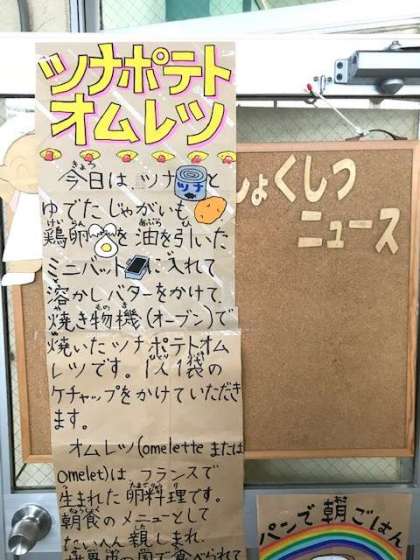 ツナポテト
オムレツ
今日は、ツナツナと
ゆでたじゃがいも
鶏卵を油を引いた
ミニバットに入れて
溶かしバターをかけて、
焼き物機(オーブン)で
焼いたツナポテトオム
レツです。1人1袋の
ケチャップをかけていただき
ます。
オムレツ(omelette または
omelet)は、フランスで
生まれた卵料理です。
朝食のメニューとして
たいへん親しまれ、
世界中の国で食べられて
しょくしつ
ニュース
パンで朝ごはん